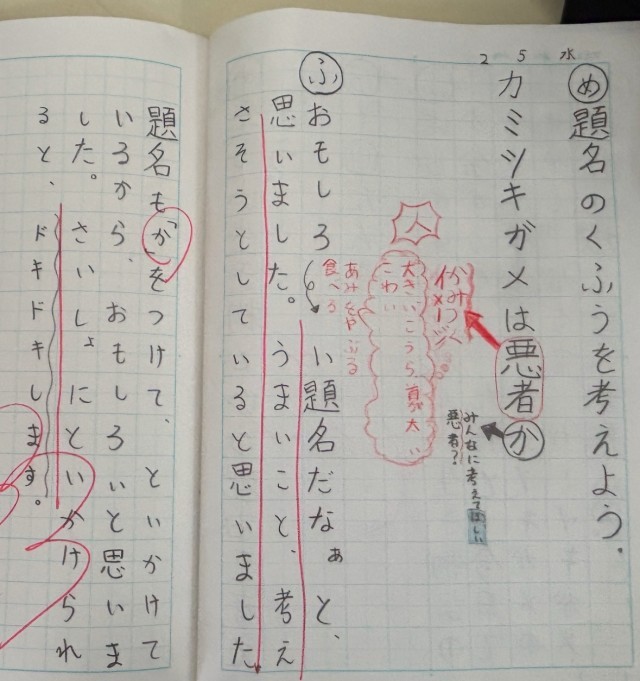 2 5 水
め 題名のくふうを考えよう.
カミツキガメは悪者か
みんなに考えてほしい
悪者?
かみつく
人
大きいこうら
こわい
あみをやぶる
食べる
ふ おもしろい題名だなぁと、
思いました。うまいこと、考え
さそうとしていると思いました
題名も「か」をつけて、といかけて
いるから、おもしろいと思いま
した。さいしょにといかけられ
ると、ドキドキします。